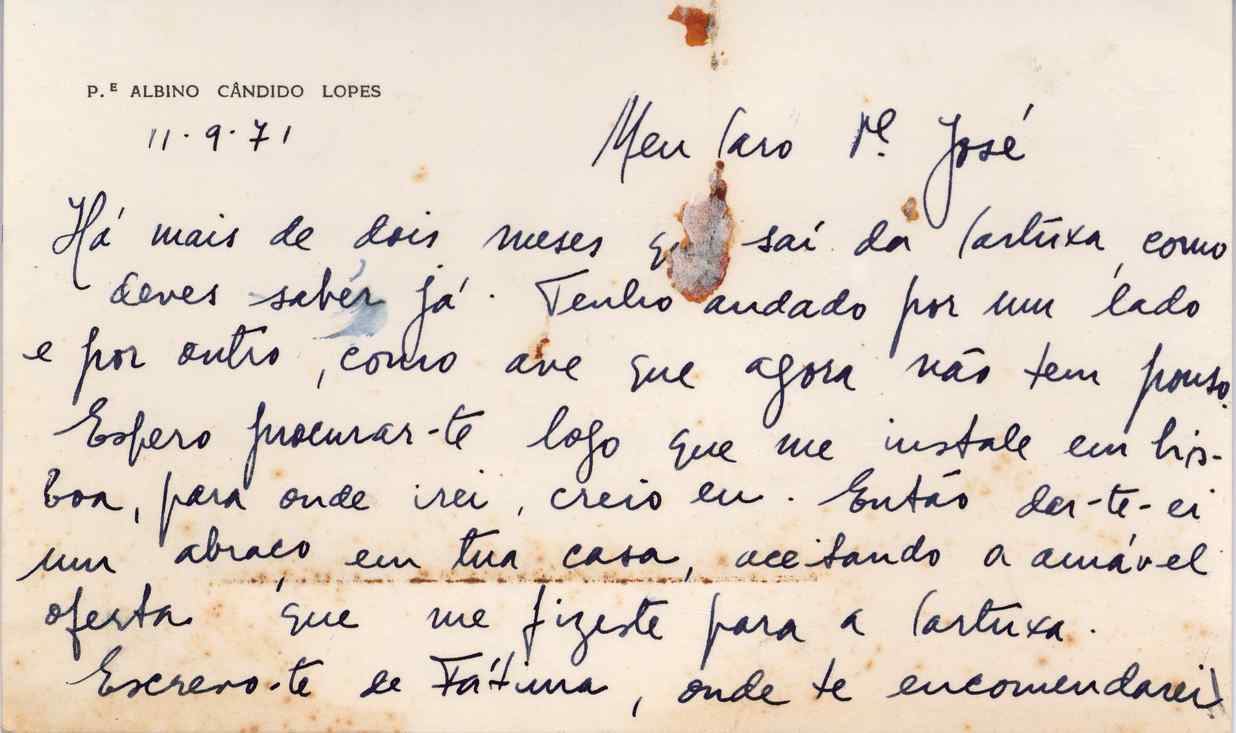 P.ᴱ ALBINO CÂNDIDO LOPES
11·9·71
Meu Caro Pe. José
Há mais de dois meses que saí da Cartuxa, como
deves saber já. Tenho andado por um lado
e por outro, como ave que agora não tem pouso.
Espero procurar-te logo que me instale em Lis-
boa, para onde irei, creio eu. Então dar-te-ei
um abraço em tua casa, aceitando a amável
oferta que me fizeste para a Cartuxa.
Escrevo-te de Fátima, onde te encomendarei